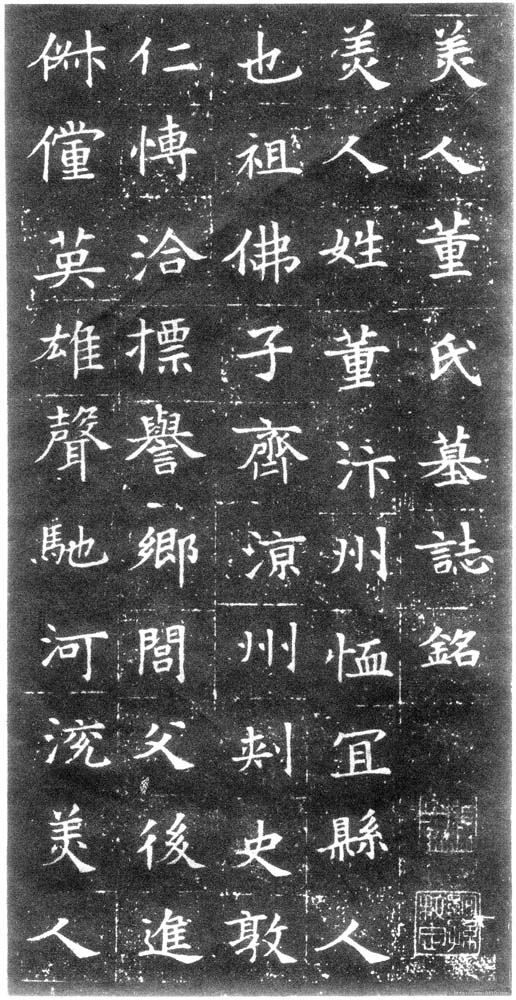 美人董氏墓誌銘
美人姓董汴州恤冝縣人
也祖佛子齊涼州刺史敦
仁慱洽摽譽鄉閭父後進
俶儻英雄聲馳河浣美人